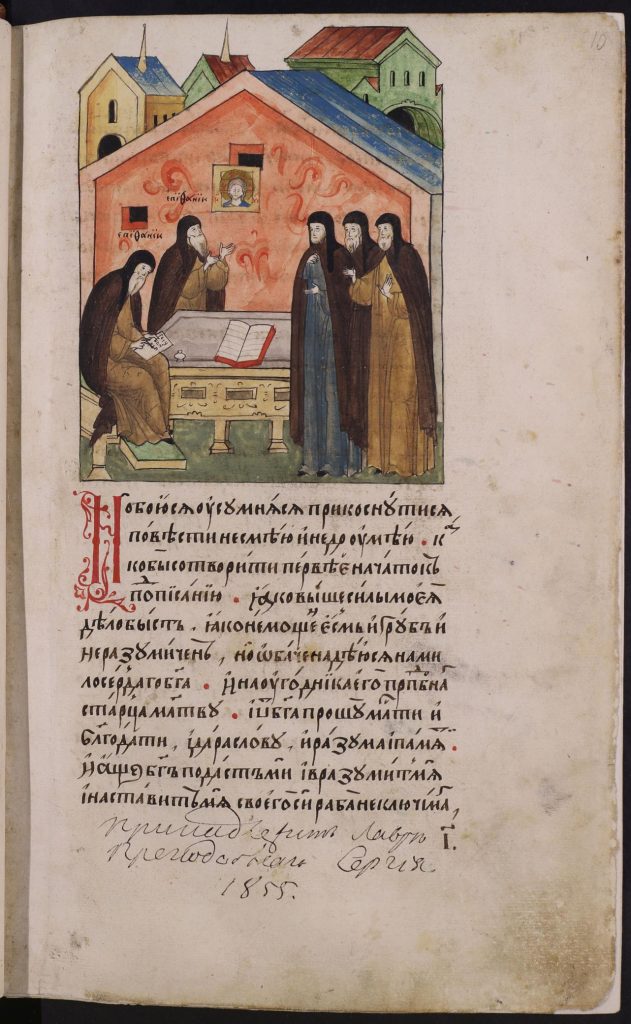 10
епифание
епифание
Но боюся ѹсумняся прикоснутися
повѣсти несмѣю и недоумѣю . ка
ко бы сотворити первѣе начатокъ
пописанїю . ꙗко выше силы моеѧ
дѣло бысть . ꙗко немощенъ есмь и грубъ и
неразумиченъ , но ѡбаче надѣюся на ми
лосердаго бг҃а . и на оугодника его прпⷣбна
старца мл҃тву . и ѿ бг҃а прошу млⷭти и
бл҃годати , и дара слову , и разума и памⷮи .
и аще бг҃ъ подастъ ми и вразумитъ мѧ
и наставитъ мѧ своего си раба неключима ,
принадлежитъ Лавре
Преподобнаго Сергия
1855.
І.